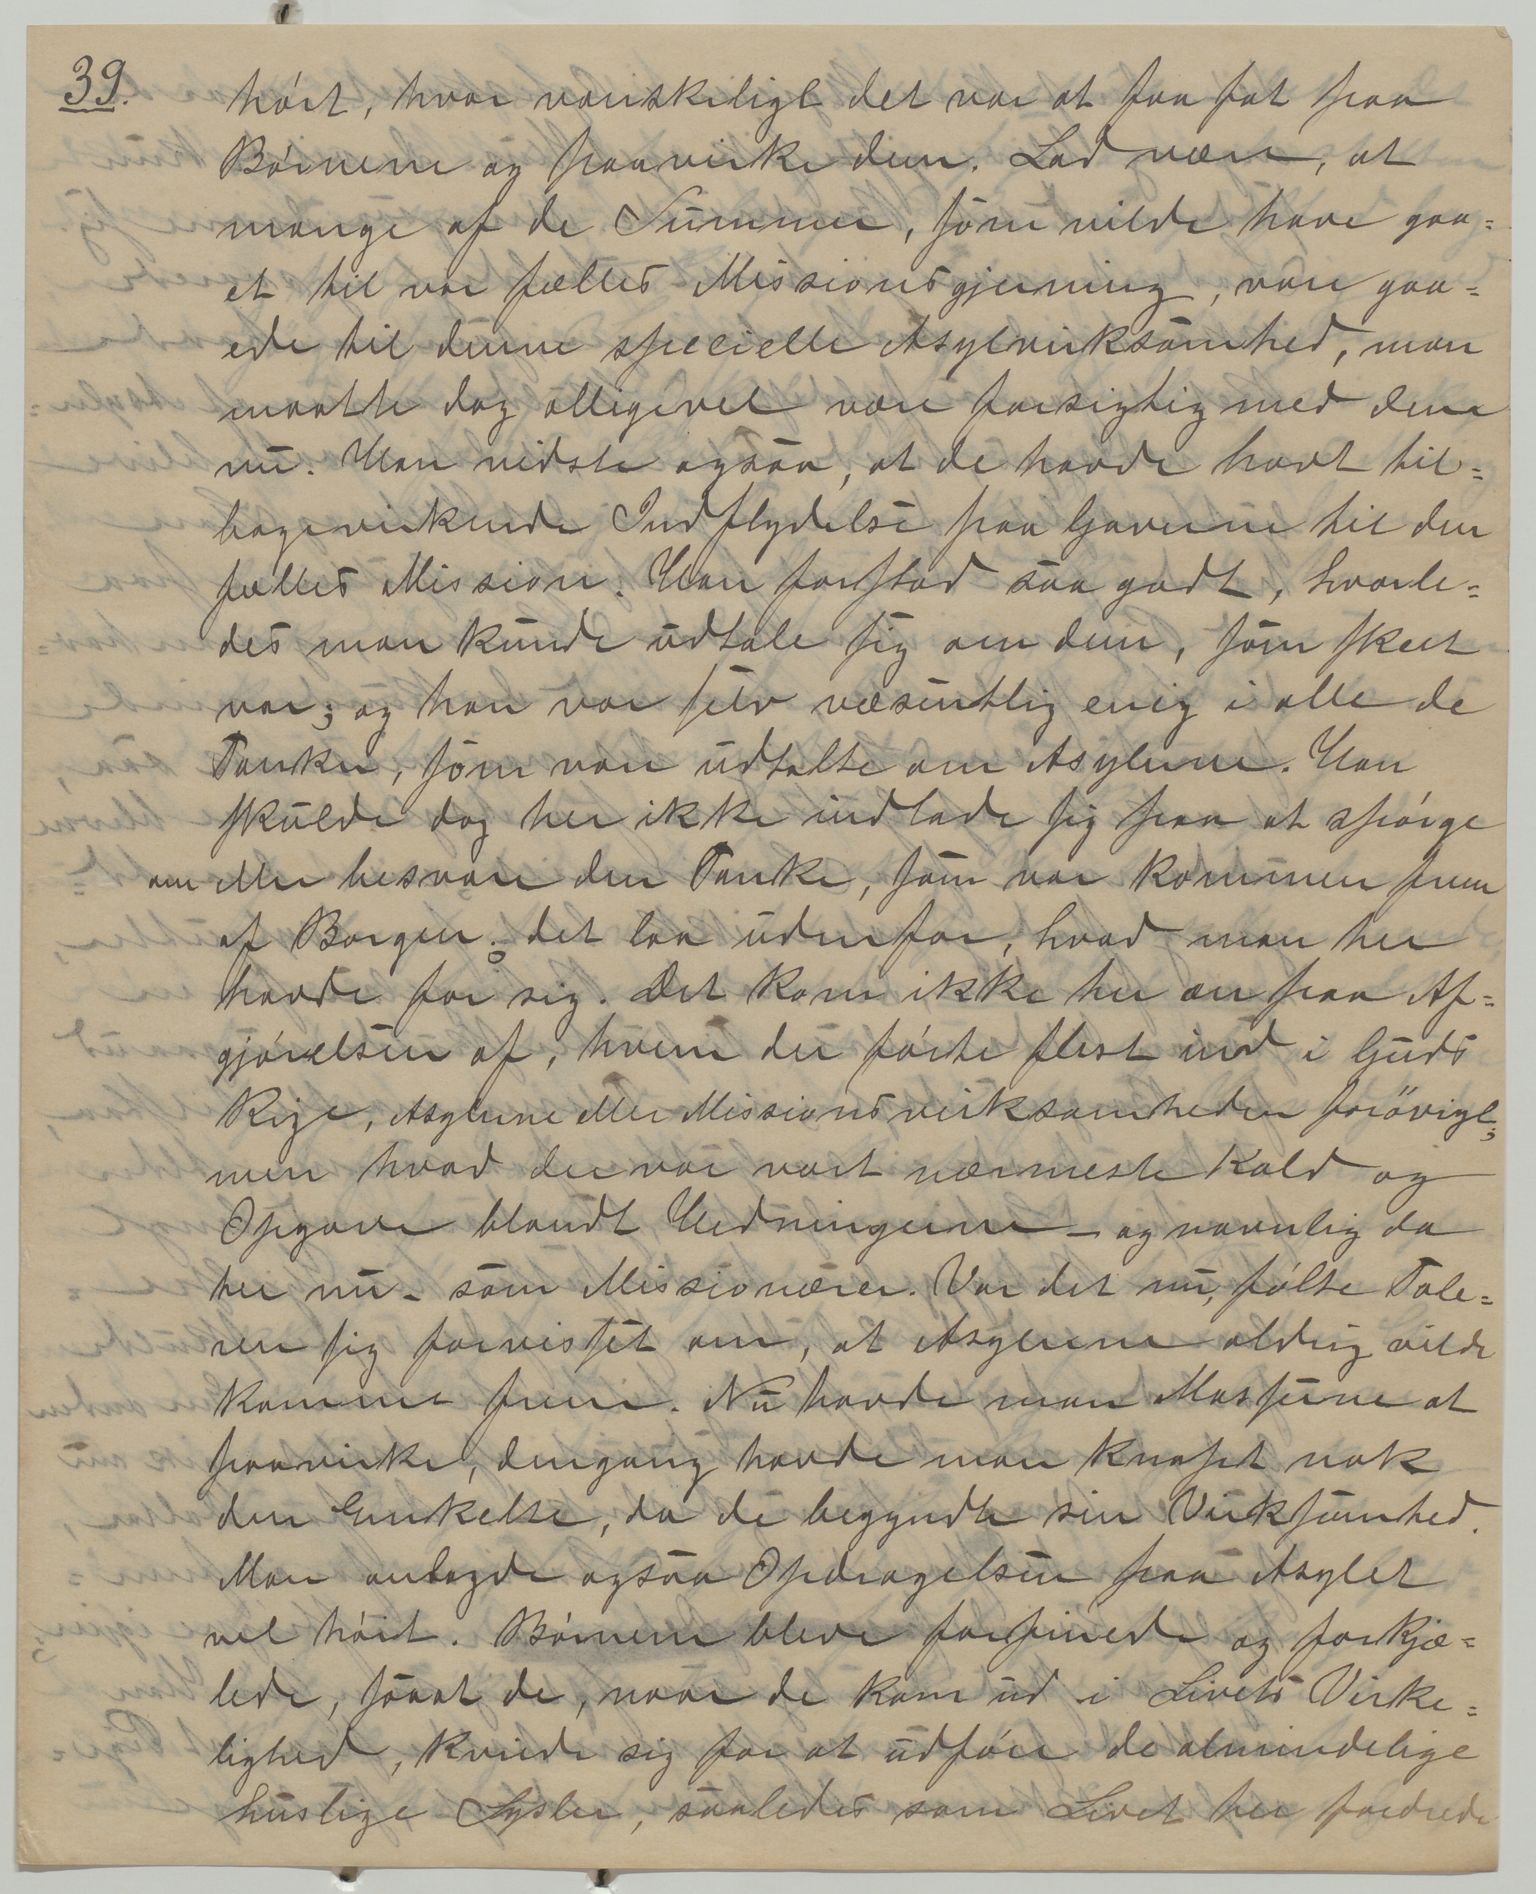 39.
hørt, hvor vanskeligt det var at faa fat paa
Børnene og paavirke dem. Lad være, at
mange af de Summer, som vilde have gaa=
et til vor fælles Missionsgjerning, vare gaa=
ede til denne specielle Asylvirksomhed, man
maatte dog alligevel være forsigtig med dem
nu. Han vidste ogsaa, at de havde havt til=
bagevirkende Indflydelse paa Gaverne til den
fælles Mission. Han forstod saa godt, hvorle=
des man kunde udtale sig om dem, som skeet
var; og han var selv væsentlig enig i alle de
Tanker, som vare udtalte om Asylerne. Han
skulde dog her ikke indlade sig paa at spørge
om eller besvare den Tanke, som var kommen frem
af Borgen; det laa udenfor, hvad man her
havde for sig. Det kom ikke her an paa Af=
gjørelsen af, hvem der førte flest ind i Guds
Rige, Asylerne eller Missionsvirksomheden forøvrigt;
men hvad der var vort nærmeste Kald og
Opgave blandt Hedningerne – og navnlig da
her nu – som Missionærer. Var det nu, følte Tale=
ren sig forvisset om, at Asylerne aldrig vilde
komme frem. Nu havde man Masserne at
paavirke, dengang havde man knapt nok
den Enkelte, da de begyndte sin Virksomhed.
Man anlagde ogsaa Opdragelsen paa Asylet
vel høit. Børnene bleve forfinede og forkjæ=
lede, saaat de, naar de kom ud i Livets Virke=
lighed, kviede sig for at udføre de almindelige
huslige Sysler, saaledes som Livet her fordrede